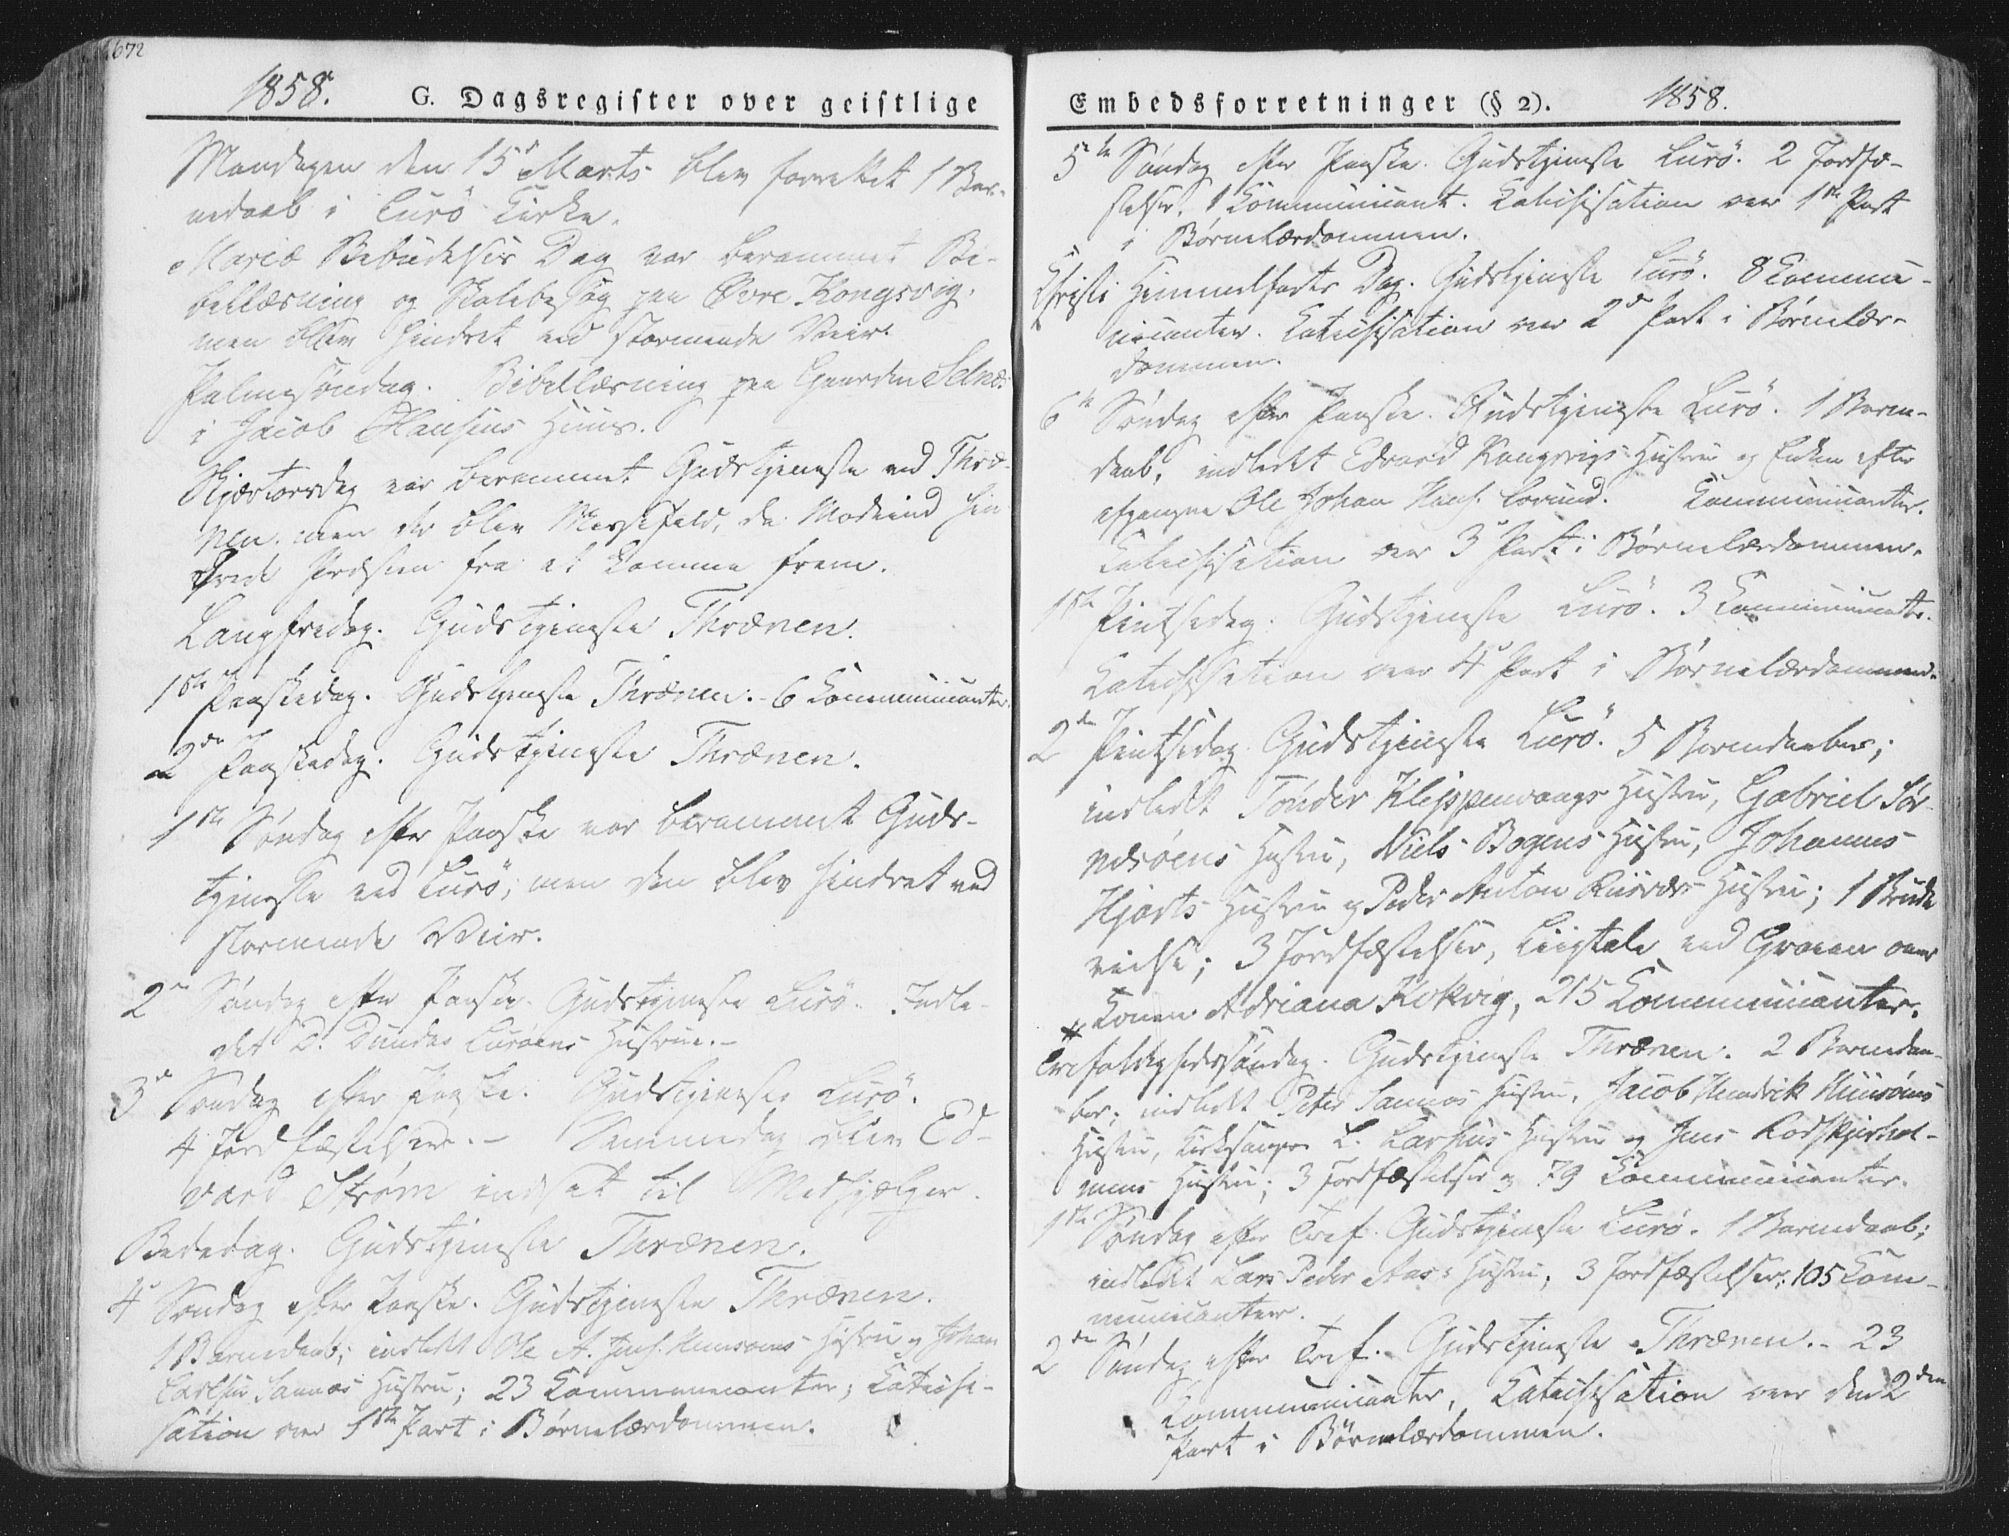 672
1858. G. Dagsregister over geistlige
Mandagen den 15de Marts blev forrettet 1 Bar-
nedaab i Lurö Kirke.
Mariæ Bebudelses Dag var berammet Bi-
bellæsning og Skolebesøg paa Øvre Kongsvig,
men blev hindret ved stormende Veir.
Palmesøndag. Bibellæsning paa Gaarden Selnæs
i Jacob Hansens Huus.
Skjærtorsdag var berammet Gudstjeneste ved Thræ-
nen, men der blev Messefald, da Modvind hin-
drede Præsten fra at komme frem.
Langfredag. Gudstjeneste Thrænen.
1ste Paaskedag. Gudstjeneste Thrænen. - 6 Communicanter.
2den Paaskedag. Gudstjeneste Thrænen.
1ste Søndag efter Paaske var berammet Guds-
tjeneste ved Lurö; men den blev hindret ved
stormende Veir.
2n Søndag efter Paaske. Gudstjeneste Lurö. Indle-
det D. Dundas Lurøens Hustrue. -
3e Søndag efter Paaske. Gudstjeneste Lurö.
4 Jordfæstelser. - Samme dag blev Ed-
vard Strøm indsat til Medhjælper.
Bededag. Gudstjeneste Thrænen.
4e Søndag efter Paaske. Gudstjeneste Thrænen.
1 Barnedaab; indledt Ole A. Hustru og Johan
Sannæs Hustru; 23 Communicanter; Catechi-
sation over 1ste Part i Børnelærdommen.
Embedsforretninger (§ 2). 1858.
5te Søndag efter Paaske. Gudstjeneste Lurö. 2 Jordfæ-
stelser. 1 Communicant. Catechisation over 1ste Part
i Børnelærdommen.
Christi Himmelfarts Dag. Gudstjeneste Lurö. 8 Commu-
nicanter. Catechisation over 2e Part i Børnelær-
dommen.
6te Søndag efter Paaske. Gudstjeneste Lurö. 1 Barne-
daab, indledet Edvard Kongsvigs Hustru og Enken efter
afgangne Ole Johan Communicanter.
Catechisation over 3e Part i Børnelærdommen.
1ste Pintsedag. Gudstjeneste Lurö. 3 Communicanter.
Catechisation over 4e Part i Børnelærdommen.
2den Pintsedag. Gudstjeneste Lurö. 5 Barnedaaber;
indledt Tönder Klippenvaags Hustru, Gabriel Sör-
nesøens Hustru, Niels Bogens Hustru, Johannes
Hjorts Hustru og Peder Anton Hustru; 1 Brude
vielse; 3 Jordfæstelser, Liigtale ved Graven over
Konen Adriana Kokvig, 215 Communicanter.
Trefoldighedssøndag. Gudstjeneste Thrænen. 2 Barnedaa-
ber; indledt Peter Sannæs Hustru, Jacob Hendrik Huusøens
Hustru, Kirkesanger L. Larsens Hustru og Jens Rødskjærhol-
mens Hustru; 3 Jordfæstelser og 79 Communicanter.
1ste Søndag efter Tref. Gudstjeneste Lurö. 1 Barnedaab;
indledet Lars Peder Aas's Hustru, 3 Jordfæstelser; 105 Com-
municanter.
2den Søndag efter Tref. - Gudstjeneste Thrænen. - 23
Communicanter, Catechisation over den 2den
Part i Börnelærdommen.